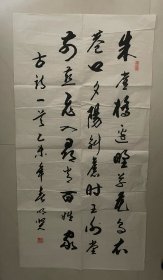 朱雀橋邊野草花烏衣
巷口夕陽斜舊時王謝堂
前燕飛入尋常百姓家
古詩一首乙未年春